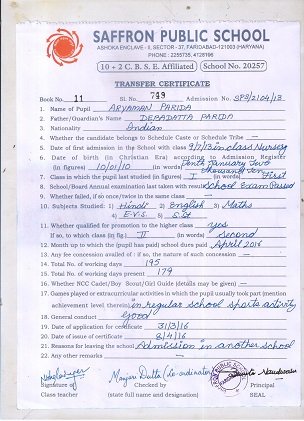 SAFFRON PUBLIC SCHOOL
ASHOKA ENCLAVE - II, SECTOR - 37, FARIDABAD-121003 (HARYANA)
PHONE : 2255735, 4128196
10 + 2 C. B. S. E. Affiliated School No. 20257
TRANSFER CERTIFICATE
Book No. 11 Sl. No. 749 Admission No. SPS/2104/13
1. Name of Pupil ARYAMAN PARIDA
2. Father/Guardian's Name DEBADATTA PARIDA
3. Nationality Indian
4. Whether the candidate belongs to Schedule Caste or Schedule Tribe —
5. Date of first admission in the School with class 9/7/13 in class Nursery
6. Date of birth (in Christian Era) according to Admission Register
(in figures) 10/01/10 (in words) Tenth January Two thousand Ten
7. Class in which the pupil last studied (in figures) I (in words) First
8. School/Board Annual examination last taken with result School Exam Passed
9. Whether failed, if so once/twice in the same class —
10. Subjects Studied: 1) Hindi 2) English 3) Maths
4) E.V.S. 5) S.st
11. Whether qualified for promotion to the higher class yes
If so, to which class (in fig.) II (in words) Second
12. Month up to which the (pupil has paid) school dues paid April 2016
13. Any fee concession availed of : if so, the nature of such concession —
14. Total No. of working days 195
15. Total No. of working days present 179
16. Whether NCC Cadet/Boy Scout/Girl Guide (details may be given) —
17. Games played or extracurricular activities in which the pupil usually took part (mention
achievement level thereon) in regular school sports activity
18. General conduct Good
19. Date of application for cerificate 31/3/16
20. Date of issue of certificate 8/4/16
21. Reasons for leaving the school Admission in another school
22. Any other remarks —
Manjari Dutta (co-ordinator)
Signature of Checked by Principal
Class teacher (state full name and designation) SEAL